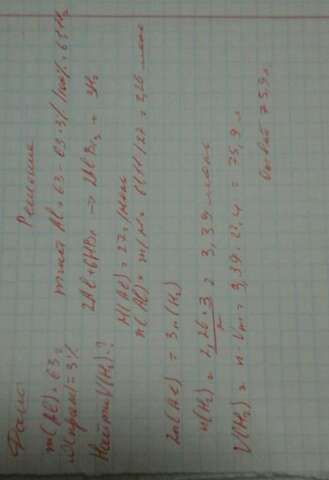 Дано: Решение
m(Al) = 63 г m чист Al = 63 - 63 · 3% / 100% = 61,11 г
W(прим) = 3% 2Al + 6HBr → 2AlBr₃ + 3H₂
Найти V(H₂) - ?
M(Al) = 27 г/моль
n(Al) = m/M = 61,11/27 = 2,26 моль
2n(Al) = 3n(H₂)
n(H₂) = 2,26 · 3 / 2 = 3,39 моль
V(H₂) = n · Vm = 3,39 · 22,4 = 75,9 л
Ответ 75,9 л